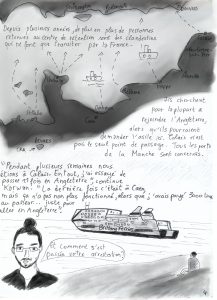 Depuis plusieurs années, de plus en plus de personnes
retenues au centre de rétention sont des clandestins
qui ne font que transiter par la France.
Ils cherchent
pour la plupart à
rejoindre l'Angleterre,
alors qu'ils pourraient
demander l'asile ici. Calais n'est
pas le seul point de passage. Tous les ports
de la Manche sont concernés.
"Pendant plusieurs semaines nous
étions à Calais. En tout, j'ai essayé de
passer fois en Angleterre", continue
Korwan. "La dernière fois c'était à Caen,
mais ça n'a pas non plus fonctionné, alors que j'avais payé
au passeur... juste pour
aller en Angleterre".
Brittany Ferries
Et comment s'est
passée votre arrestation?